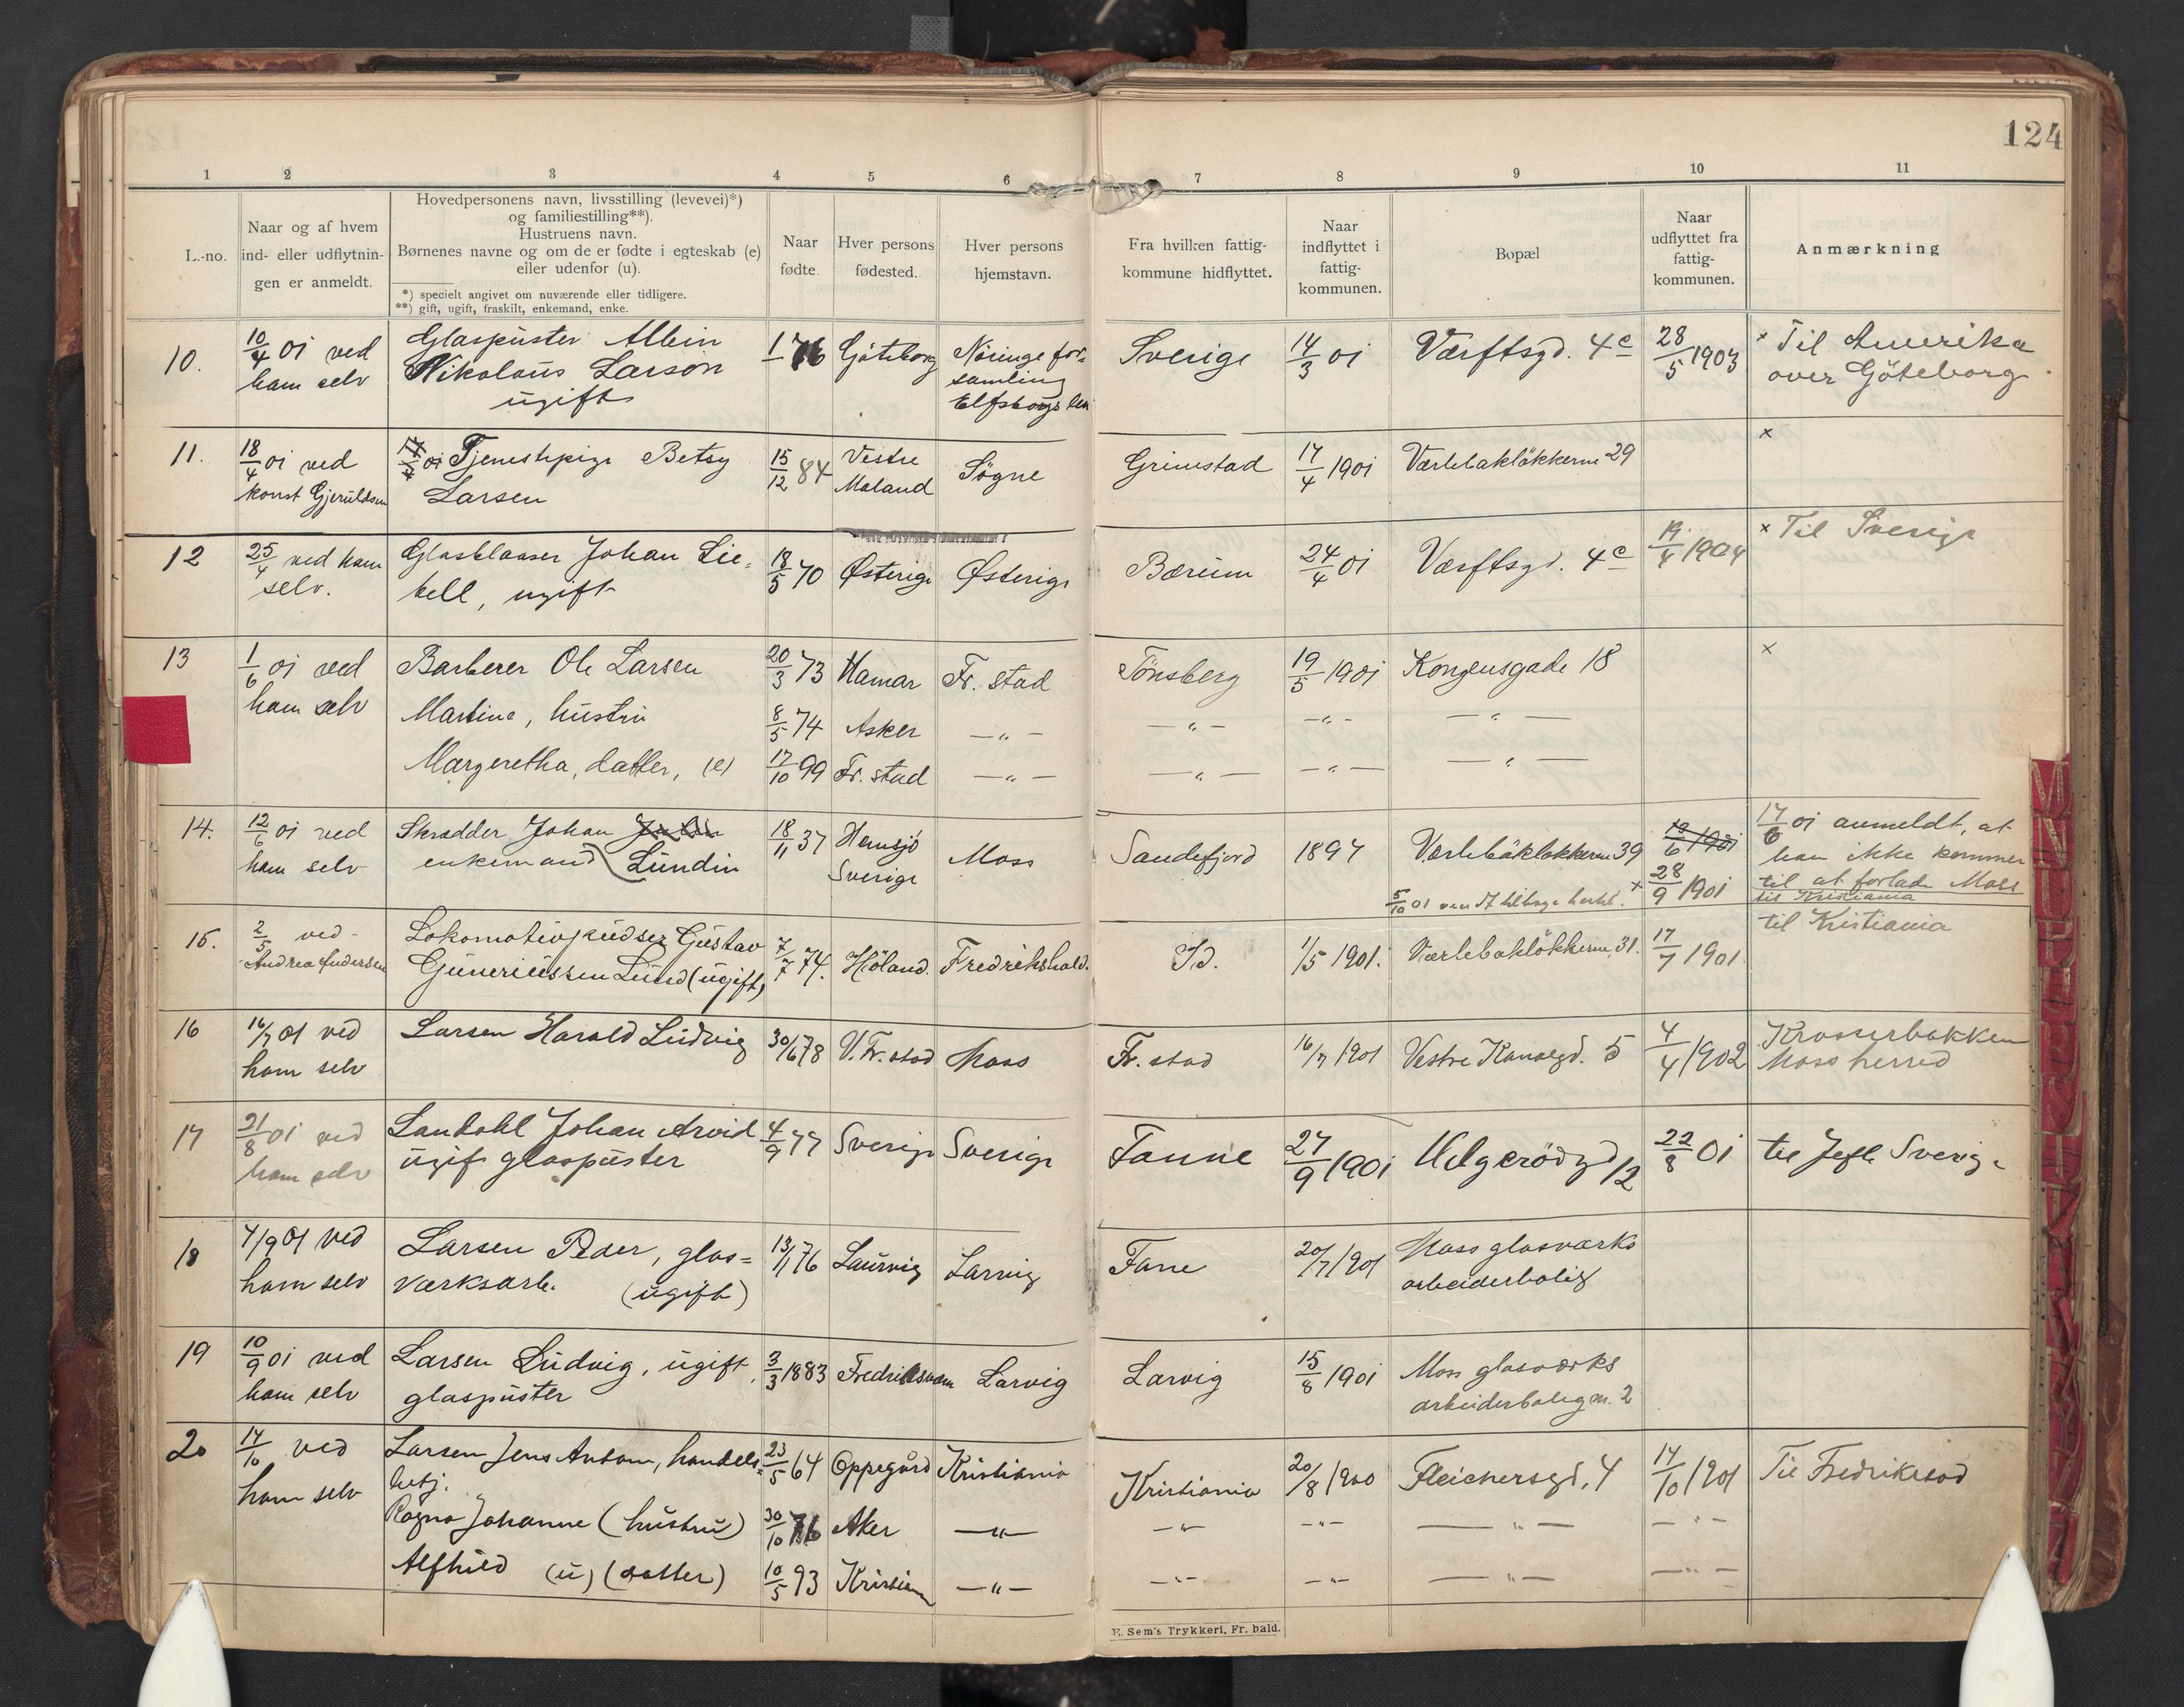 124
1 2 3 4 5 6 7 8 9 10 11
L.-no.
Naar og af hvem
ind- eller udflytnin-
gen er anmeldt.
Hovedpersonens navn, livsstilling (levevei)*)
og familiestilling**).
Hustruens navn.
Børnenes navne og om de er fødte i egteskab (e)
eller udenfor (u).
*) specielt angivet om nuværende eller tidligere.
**) gift, ugift, fraskilt, enkemand, enke.
Naar
fødte.
Hver persons
fødested.
Hver persons
hjemstavn.
Fra hvilken fattig-
kommune hidflyttet.
Naar
indflyttet i
fattig-
kommunen.
Bopæl
Naar
udflyttet fra
fattig-
kommunen.
Anmærkning
10. 10/4 01 ved Glaspuster Albin 1/ 76 Göteborg Sverige 14/3 01 Værftsgd. 4c 28/5 1903 × Til Amerika
ham selv Nikolaus Larson samling over Göteborg
ugift Elfsborgs len
11. 18/4 01 ved 17/4 01 Tjenestepige Betsy 15/12 84 Vestre Søgne Grimstad 17/4 1901 Værlebakløkkerne 29 ×
konst Gjeruldsen Larsen Moland
12 25/4 ved ham Glasblaaser Johan Lie- 18/5 70 Østerige Østerige Bærum 24/4 01 Værftsgd. 4c 19/4 1904 × Til Sverige
selv. bell, ugift
13 1/6 01 ved Barberer Ole Larsen 20/3 73 Hamar Fr. stad Tönsberg 19/5 1901 Kongensgade 18 ×
ham selv Martine, hustru 8/5 74 Asker —„— —„— —„— —„—
Margretha, datter, (e) 17/10 99 Fr. stad —„— —„— —„— —„—
14. 12/6 01 ved Skrædder Johan 18/11 37 Hemsjö Moss Sandefjord 1897 Værlebakløkkerne 39 17/6 01 anmeldt, at
ham selv enkemand Lundin Sverige 28/9 1901 han ikke kommer
5/10 01 tilbage hertil. × til at forlade Moss
til Kristiania
15. 2/5 ved Lokomotivpudser Gustav 7/7 74. Höland. Fredrikshald. Id. 1/5 1901. Værlebakløkkerne, 31. 17/7 1901 til Kristiania
Andrea Andersen Guneriussen Lund (ugift)
16 16/7 01 ved Larsen Harald Ludvig 30/6 78 V. Fr. stad Moss Fr. stad 16/7 1901 Vestre Kanalgd. 5 4/4 1902 Krosserbakken
ham selv Moss herred
17 21/8 01 ved Landahl Johan Arvid 4/9 77 Sverige Sverige Fanne 27/9 1901 Helgerödgd 12 22/8 01 til Jefle Sverige
ham selv ugift glaspuster
18 7/9 01 ved Larsen Peder, glas- 13/11 76 Laurvig Larvig Fane 20/7 1901 Moss glasværks
ham selv værksarb. (ugift) arbeiderbolig
19 10/9 01 ved Larsen Ludvig, ugift, 3/3 1883 Fredriksværn Larvig Larvig 15/8 1901 Moss glasværks
ham selv glaspuster arbeiderbolig nr. 2
20 14/10 ved Larsen Jens Anton, handels- 23/5 64 Oppegård Kristiania Kristiania 20/8 1900 Fleichersgd. 4 14/10 1901 Til Fredrikstad
ham selv betj.
Ragna Johanne (hustru) 30/10 76 Aker —„— —„— —„— —„— —„—
Alfhild (u) (datter) 10/5 93 Kristiania —„— —„— —„— —„— —„—
E. Sem's Trykkeri, Fr. hald.